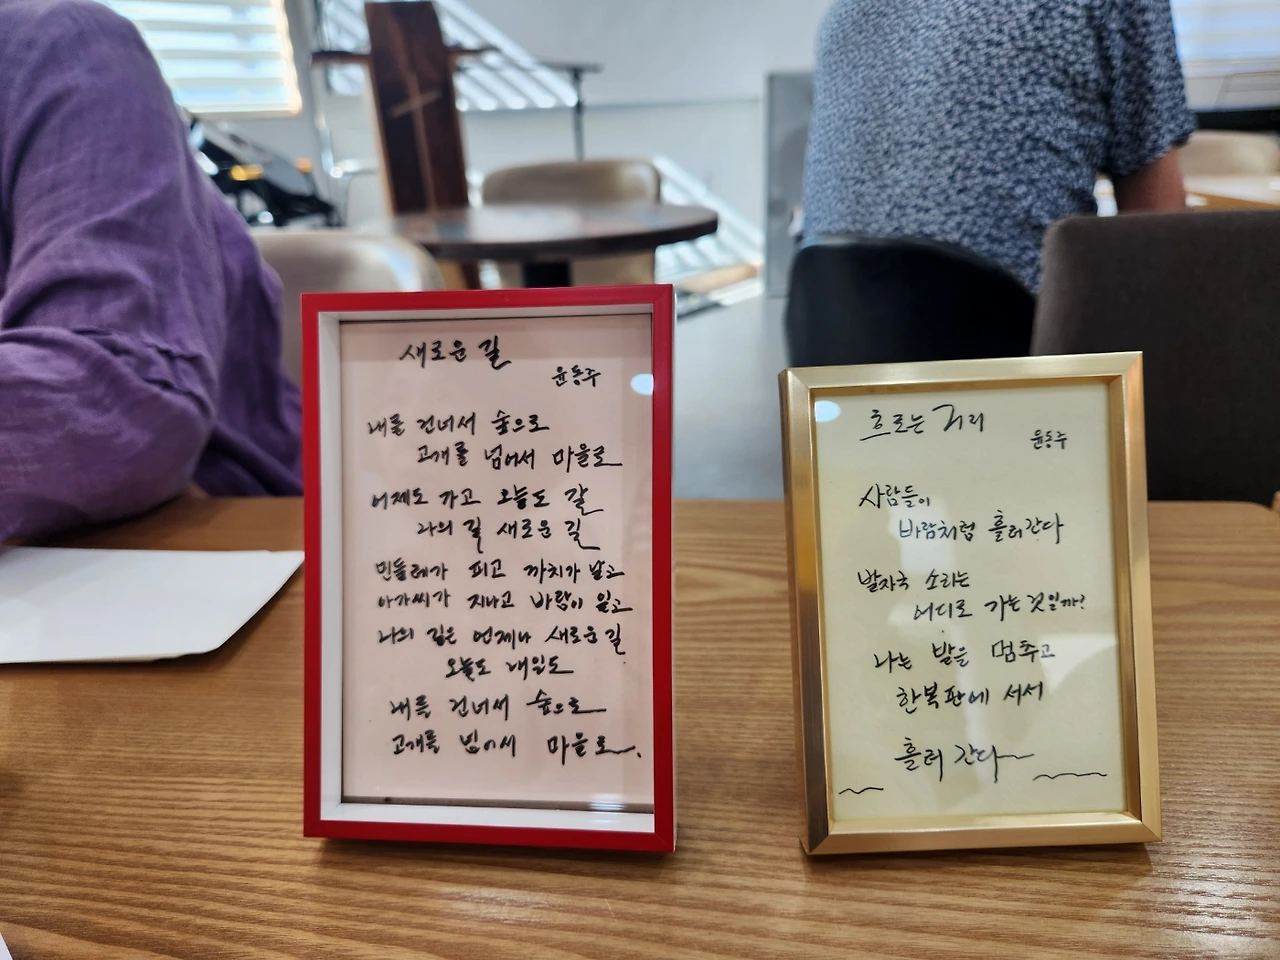 새로운 길
윤동주
내를 건너서 숲으로
고개를 넘어서 마을로
어제도 가고 오늘도 갈
나의 길 새로운 길
민들레가 피고 까치가 날고
아가씨가 지나고 바람이 일고
나의 길은 언제나 새로운 길
오늘도 내일도
내를 건너서 숲으로
고개를 넘어서 마을로.
흐르는 거리
윤동주
사람들이
바람처럼 흘러간다
발자국 소리는
어디로 가는 것일까?
나는 발을 멈추고
한복판에 서서
흘러 간다